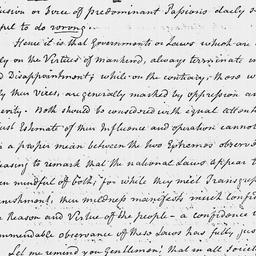 usion or Force of predominant Passions daily s
pt to do wrong.
Hence it is that Governments or Laws which are
ly on the Virtues of Mankind, always terminate in
d Disappointment; while on the contrary, those w
ly their vices, are generally marked by oppression an
verity. Both should be considered with equal attent
just Estimate of their Influence and operation cannot
in a proper mean between the two Extremes observe
easing to remark that the national Laws appear t
een mindful of both; for while they meet Transgress
unishment, their mildness manifests much confid
e Reason and Virtue of the people – a confidence w
ommendable observance of these Laws has fully just
Let me remind you Gentlemen! that in all Societ